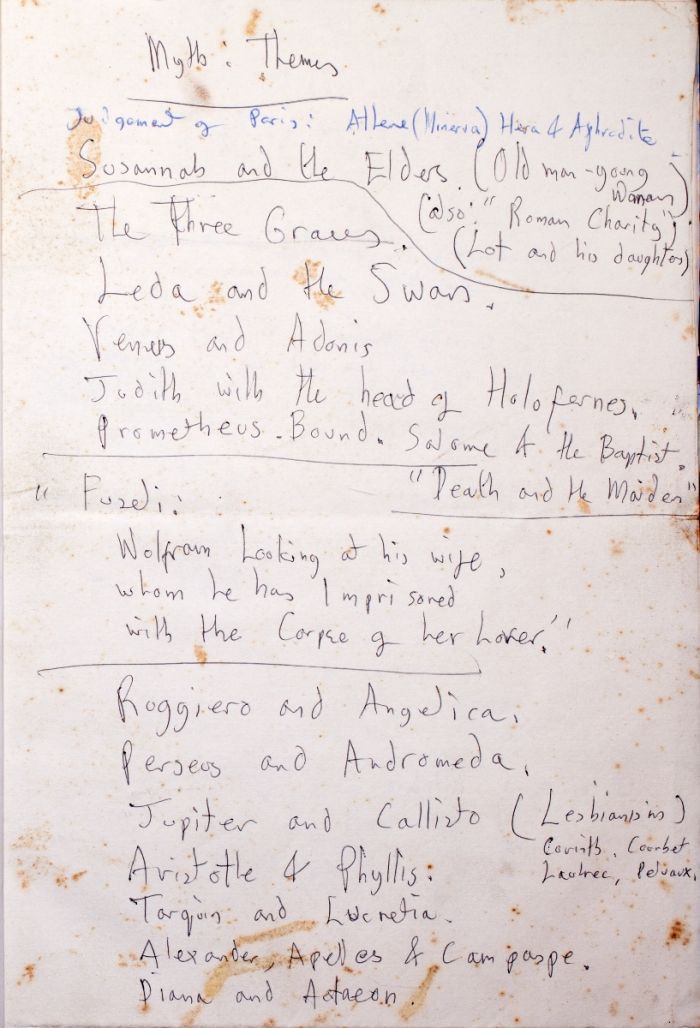 Myth: Themes
Judgement of Paris: Athene (Minerva) Hera & Aphrodite
Susannah and the Elders. (Old man-young
Woman)
(also: "Roman Charity");
(Lot and his daughters)
The Three Graces.
Leda and the Swan.
Venus and Adonis
Judith with the head of Holofernes.
Prometheus-Bound. Salome & the Baptist.
"Death and the Maiden"
" Fuseli:
Wolfram Looking at his wife,
whom he has Imprisoned
with the Corpse of her Lover."
Roggiero and Angelica.
Perseus and Andromeda.
Jupiter and Callisto (Lesbianism)
Corinth, Courbet
Lautrec, Delvaux.
Aristotle & Phyllis.
Tarquin and Lucretia.
Alexander, Apelles & Campaspe.
Diana and Actaeon.